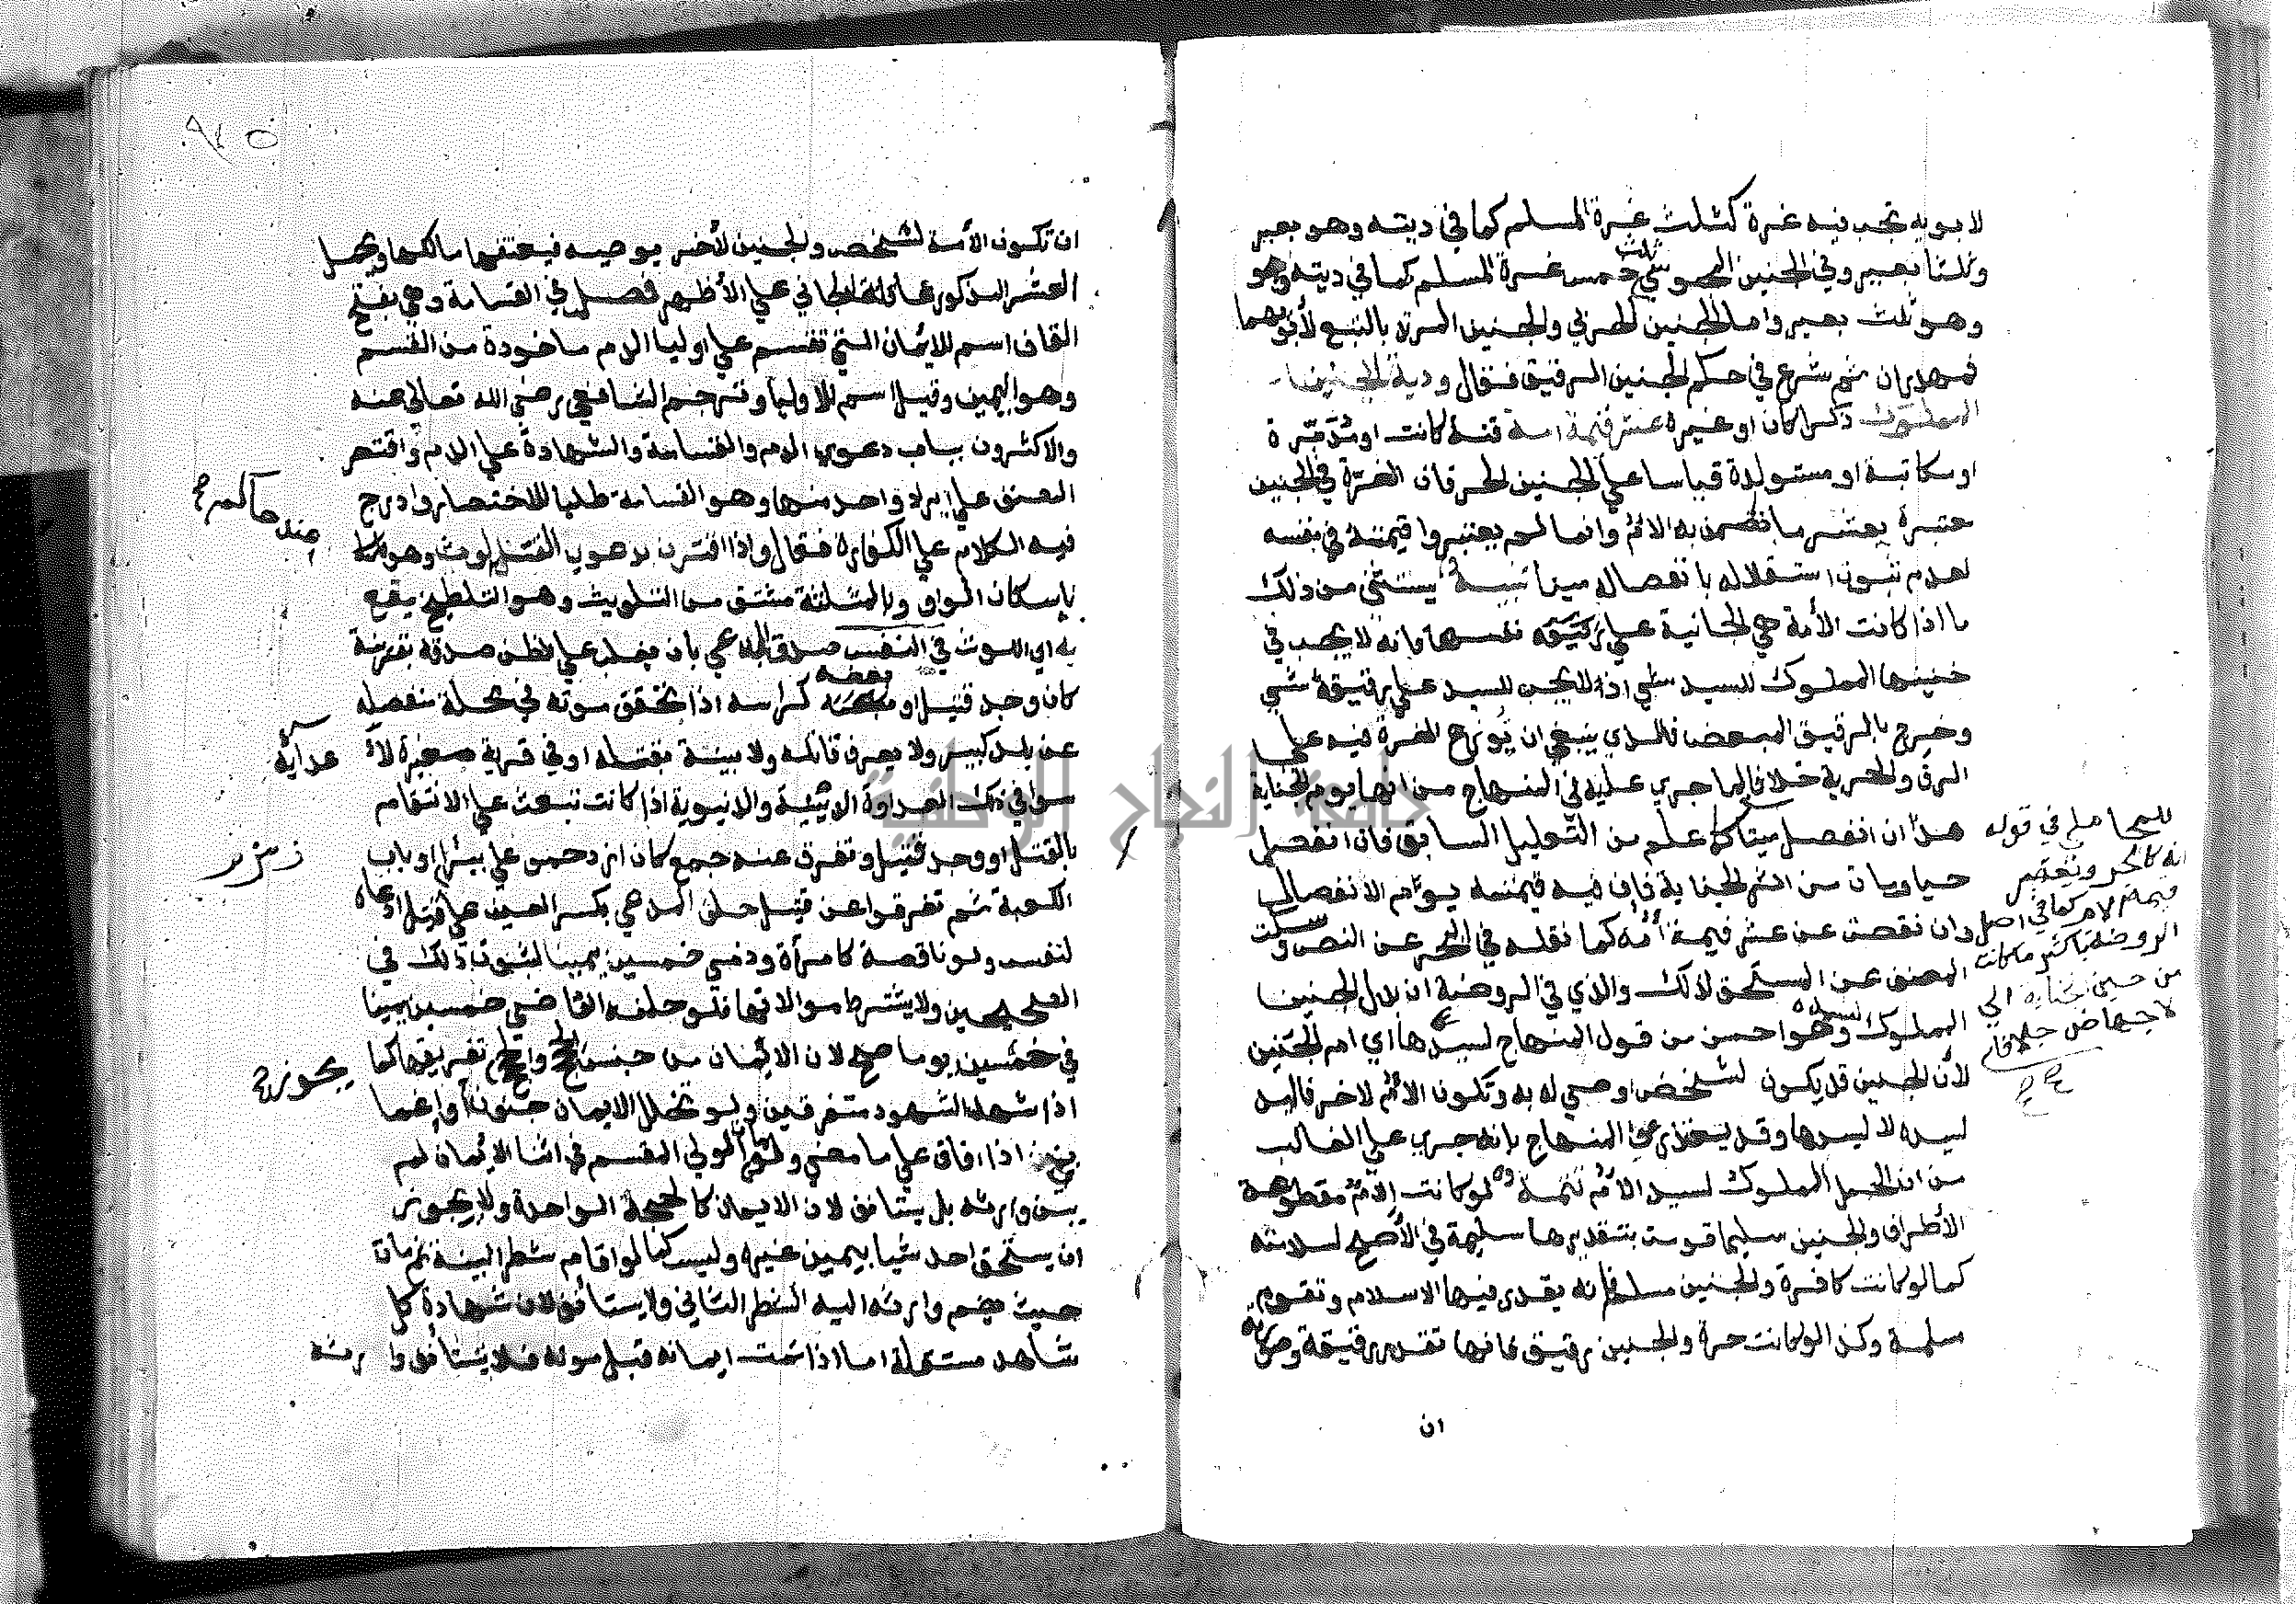 لابويه تجب فيه غرة كثلث غرة المسلم كما في ديته وهو بعير
وثلثا بعير وفي الجنين المجوسي ثلث خمس غرة المسلم كما في ديته وهو
وهو ثلث بعير واما الجنين الحربي والجنين المرتد بالتبع لأبويهما
فمهدران ثم شرع في حكم الجنين الرقيق فقال ودية الجنين
المملوك ذكرا كان او غيره عشر قيمة امه قنة كانت او مدبرة
او مكاتبة او مستولدة قياسا على الجنين الحر فان الغرة في الجنين
معتبرة بعشر ما تضمن به الام وانما لم يعتبروا قيمته في نفسه
لعدم ثبوت استقلاله بانفصاله ميتا تنبيه يستثنى من ذلك
ما اذا كانت الأمة هي الجانية على نفسها فانه لا يجب في
جنينها المملوك للسيد شي اذ لا يجب للسيد على رقيقه شي
وخرج بالرقيق المبعض فالذي ينبغي ان توزع الغرة فيه على
الرق والحرية خلافا لما جرى عليه في المنهاج من انها يوم الجناية
هذا ان انفصل ميتا كما علم من التعليل السابق فان انفصل
حيا ومات من اثر الجناية فان فيه قيمته يوم الانفصال
وان نقصت عن عشر قيمة أمه كما نقله في البحر عن النص وسكت
المصنف عن المستحق لذلك والذي في الروضة ان بدل الجنين
المملوك لسيده وهو احسن من قول المنهاج لسيدها أي ام الجنين
لأن الجنين قد يكون لشخص اوصي له به وتكون الام لاخر فالبدل
لسيده لا لسيدها وقد يعتذر عن المنهاج بانه جرى على الغالب
من ان الحمل المملوك لسيد الأم تتمة لو كانت الام مقطوعة
الأطراف والجنين سليما قومت بتقديرها سليمة في الأصح لسلامته
كما لو كانت كافرة والجنين مسلم فانه يقدر فيها الاسلام وتقوم
مسلمة وكذا لو كانت حرة والجنين رقيق فانها تقدر رقيقة وصورته
ان
للمحاملي في قوله
انه كالحر وتعتبر
قيمة الام كما في اصل
الروضة باكثر ما كانت
من حين الجناية الى
الاجهاض خلافا
ان تكون الأمة لشخص والجنين لأخر بوصيه فيعتقها مالكها ويحمل
العشر المذكور عاقلة الجاني على الأظهر فصل في القسامة وهي بفتح
القاف اسم للايمان التي تقسم على اوليا الدم ماخوذة من القسم
وهو اليمين وقيل اسم للاوليا وترجم الشافعي رضي الله تعالى عنه
والاكثرون بباب دعوى الدم والقسامة والشهادة على الدم واقتصر
المصنف على ايراد واحد منها وهو القسامة طلبا للاختصار وادرج
فيه الكلام على الكفارة فقال واذا اقترن بدعوى القتل لوث وهو
باسكان الواو وبالمثلثة مشتق من التلويث وهو التلطيخ يقع
به اي اللوث في النفس صدق المدعي بان يغلب على الظن صدقه بقرينة
كان وجد قتيل او بعضه كراسه اذا تحقق موته في محلة منفصله
عن بلد كبير ولا يعرف قاتله ولا بينة بقتله او في قرية صغيرة لأ
عدائه
سوا في ذلك العداوة الدينية والدنيوية اذا كانت تبعث على الانتقام
بالقتل او وجد قتيل وتفرق عنه جمع كان ازدحموا على بئر او باب
الكعبة ثم تفرقوا عن قتيل حلف المدعي بكسر العين على قتل ادعاه
لنفس ولو ناقصة كامرأة وذمي خمسين يمينا لثبوت ذلك في
الصحيحين ولا يشترط موالاتها فلو حلفه القاضي خمسين يمينا
في خمسين يوما صح لان الايمان من جنس الحجج والحجج تفريقها كما
يجوز
اذا شهد الشهود متفرقين ولو تخلل الايمان جنون أو إغما
بنى اذا افاق على ما مضى ولو مات الولي المقسم في اثنا الأيمان لم
يبن وارثه بل يستانف لان الايمان كالحجة الواحدة ولا يجوز
ان يستحق احد شيا بيمين غيره وليس كما لو اقام شطر البينة ثم مات
حيث يضم وارثه اليه الشطر الثاني ولا يستأنف لان شهادة كل
شاهد مستقلة اما اذا تمت ايمانه قبل موته فلا يستأنف وارثه
جامعة النجاح الوطنية